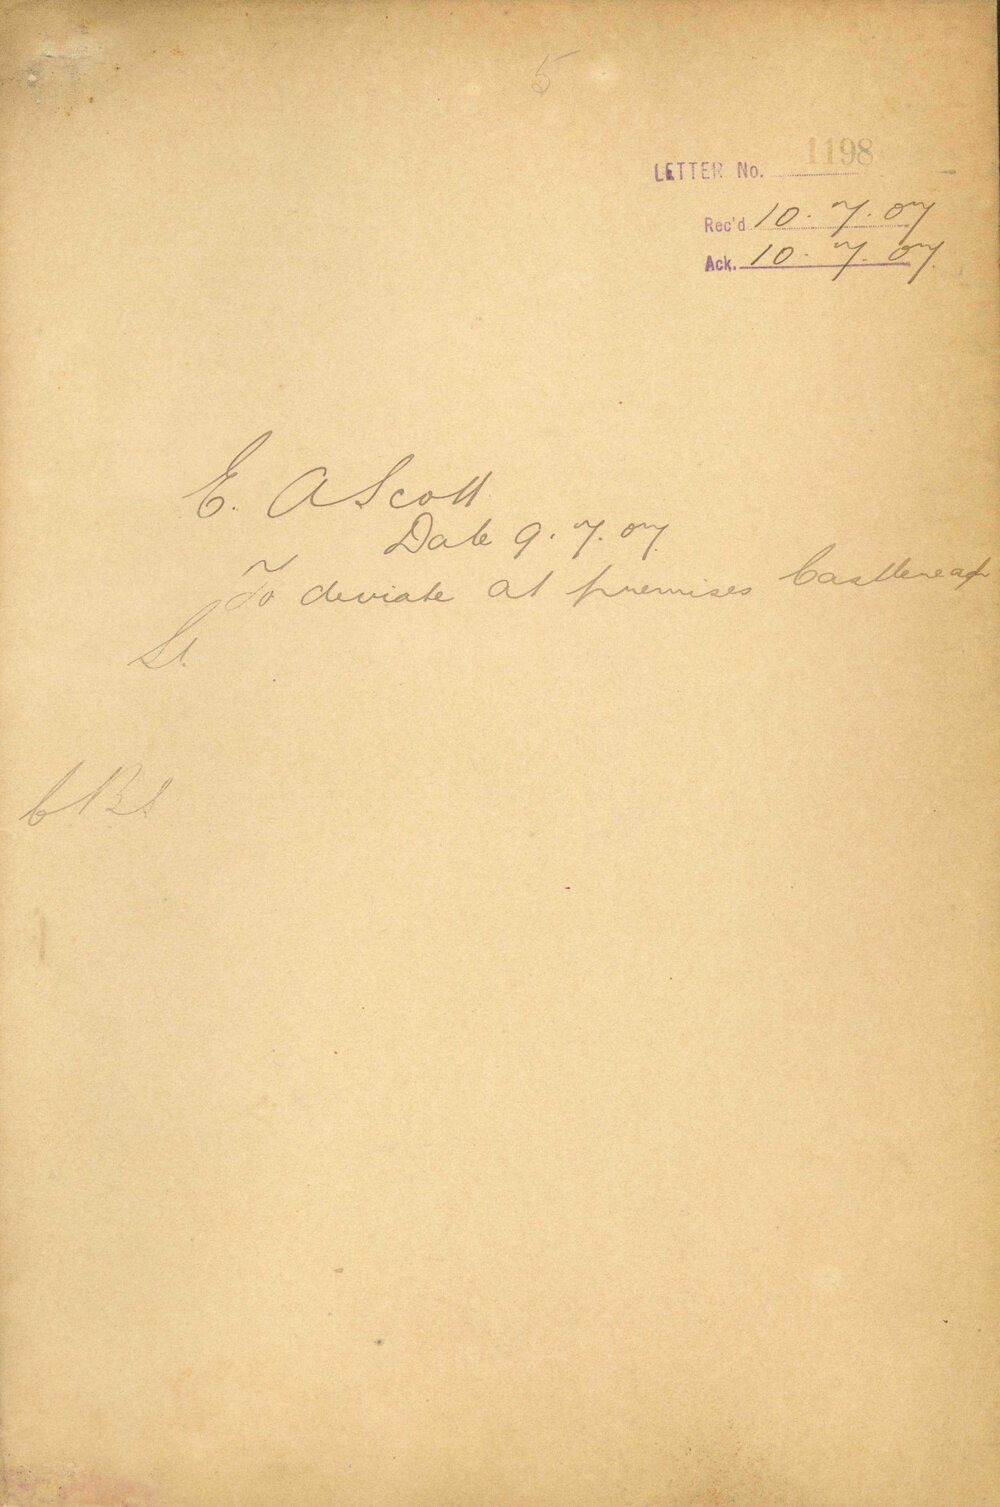 5
LETTER No. 1198
Rec'd 10.7.07
Ack. 10.7.07.
E. A Scott
Date 9.7.07.
To deviate at premises Castlereagh
St.